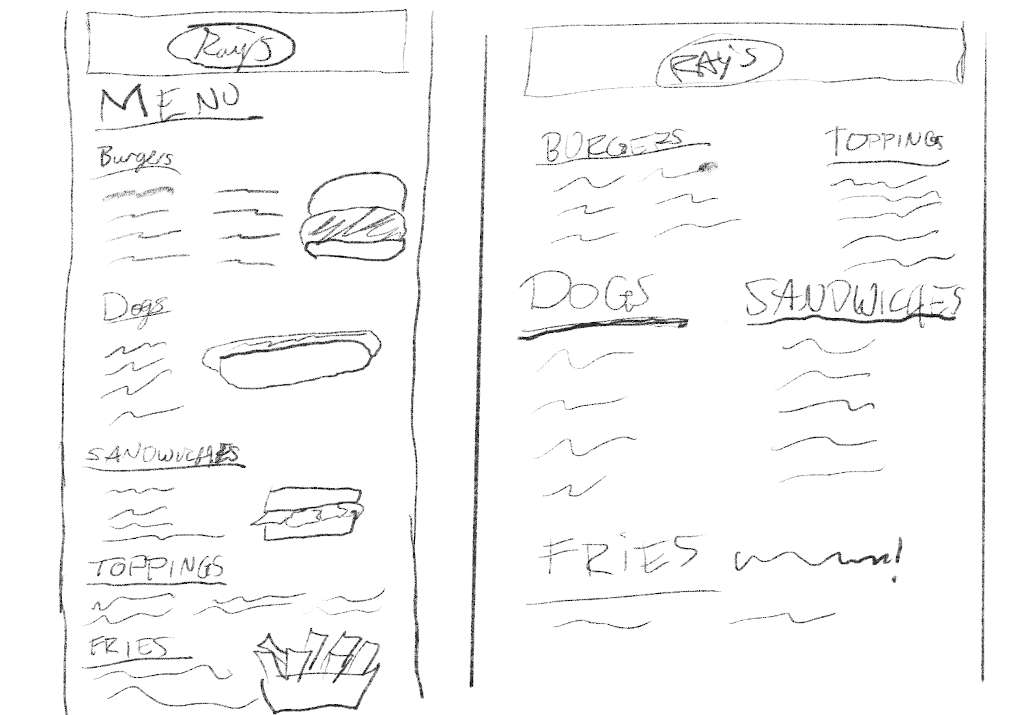 Ray's
MENU
Burgers
Dogs
SANDWICHES
TOPPINGS
FRIES
RAY'S
BURGERS
TOPPINGS
DOGS
SANDWICHES
FRIES